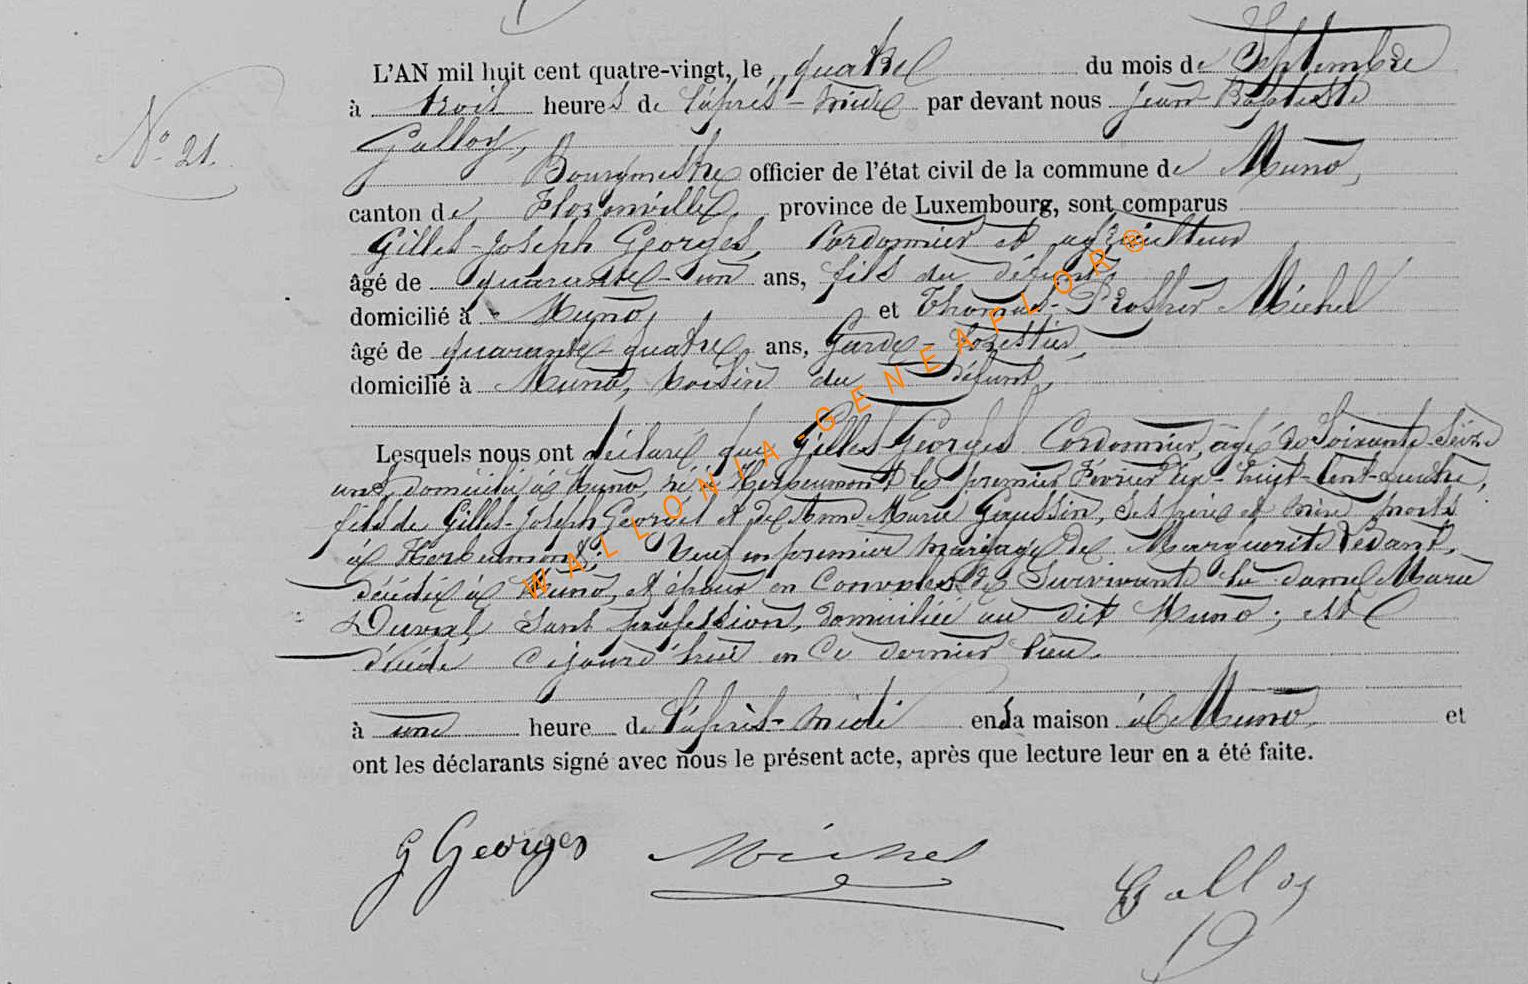 L'AN mil huit cent quatre-vingt, le quatre du mois de Septembre
à trois heures de l'après-midi par devant nous Jean Baptiste
Galloy,
N° 21.
Bourgmestre officier de l'état civil de la commune de Muno,
canton de Florenville, province de Luxembourg, sont comparus
Gilles-Joseph Georges, Cordonnier et agriculteur
âgé de quarante-un ans, fils du défunt,
domicilié à Muno, et Thomas-Prosper Michel
âgé de quarante-quatre ans, Garde-forestier,
domicilié à Muno, voisin du défunt,
Lesquels nous ont déclaré que Gilles Georges Cordonnier, âgé de Soixante Seize
ans, domicilié à Muno, né à Herbeumont le premier Février dix-huit-cent-quatre,
fils de Gilles-Joseph Georges et de Anne Marie Gaussin, ses père et mère morts
à Herbeumont; Veuf en premier mariage de Marguerite Ledant,
décédée à Muno, et époux en Convoles de Survivant la dame Marie
Duvol, sans profession, domiciliée au dit Muno; est
décédé cejourd'hui en ce dernier lieu,
à une heure de l'après-midi en sa maison à Muno, et
ont les déclarants signé avec nous le présent acte, après que lecture leur en a été faite.
G Georges Michel Galloy
WALLONIA-GENEAFLOR®